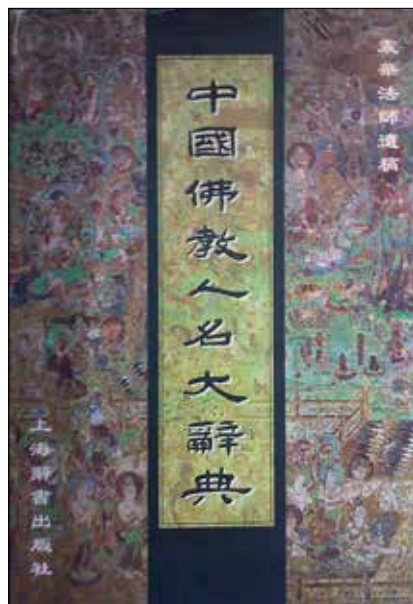 震華法師遺稿
中國佛教人名大辭典
上海辭書出版社